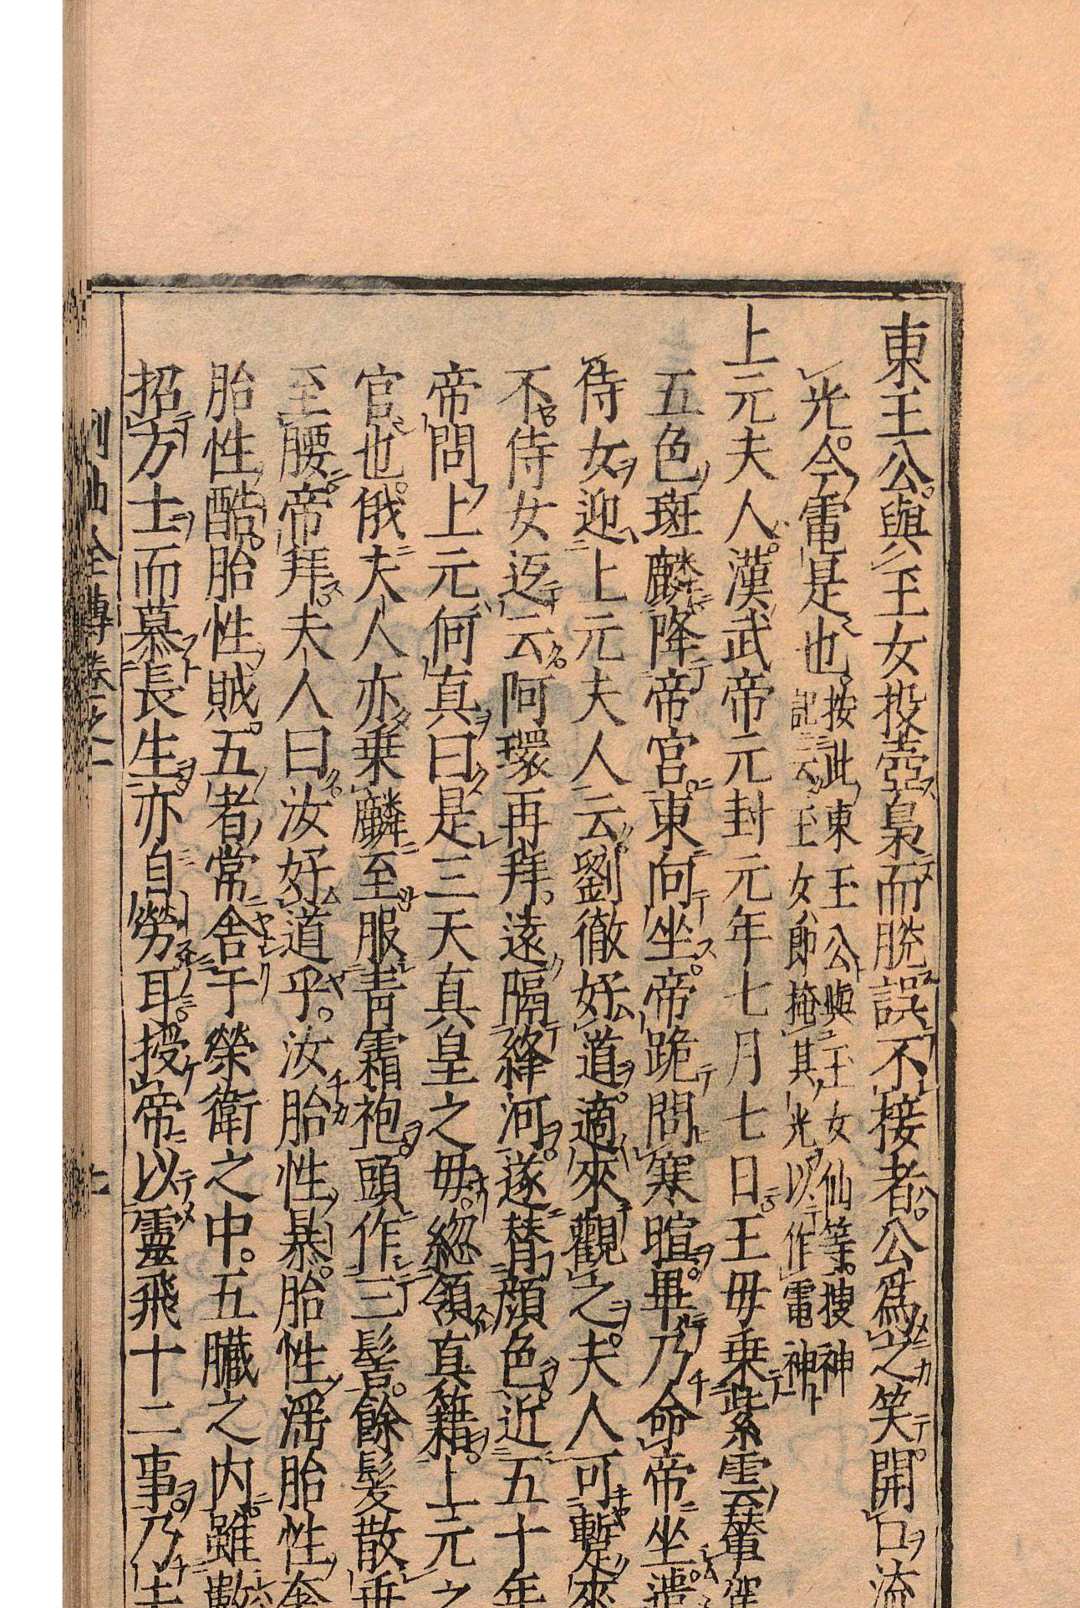 東王公與玉女投壺梟而脫誤不接者公爲之笑開口流
光今電是也按此東王公與玉女仙等搜神
記云玉女即掩其光以作電神
上元夫人漢武帝元封元年七月七日王母乗紫雲輦駕
五色斑麟降帝宮東向坐帝跪問寒暄畢乃命帝坐遣
侍女迎上元夫人云劉徹好道適來觀之夫人可蹔來
不侍女返云阿環再拜遠隔絳河遂替顔色近五十年
帝問上元何真曰是三天真皇之母総領真籍上元之
官也俄夫人亦乗麟至服青霜袍頭作三髻餘髮散垂
至腰帝拜夫人曰汝好道乎汝胎性暴胎性淫胎性奢
胎性酷胎性賊五者常舎于榮衛之中五臟之内雖
招方士而慕長生亦自勞耳授帝以靈飛十二事乃去
列仙全傳卷之二